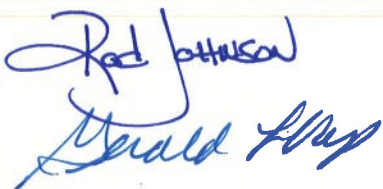 Rod Johnson
Gerald